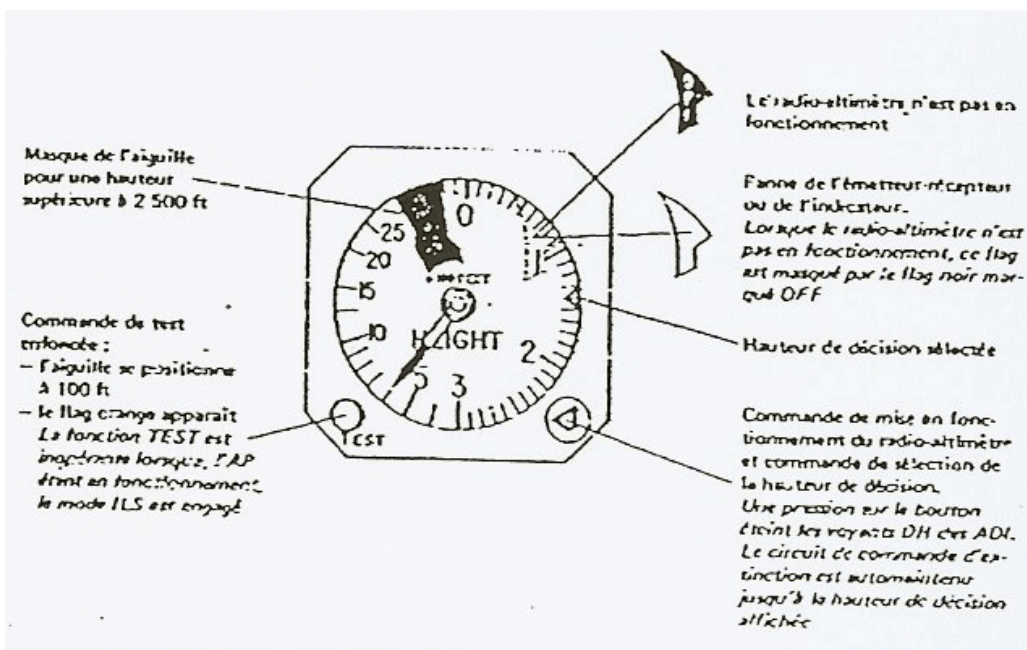 Masque de l'aiguille
pour une hauteur
supérieure à 2 500 ft
Commande de test
enfoncée :
– l'aiguille se positionne
à 100 ft
– le flag orange apparaît
La fonction TEST est
inopérante lorsque, l'AP
étant en fonctionnement,
le mode ILS est engagé
0
25
20
15
10
HEIGHT
5
3
2
TEST
Le radio-altimètre n'est pas en
fonctionnement
Panne de l'émetteur-récepteur
ou de l'indicateur.
Lorsque le radio-altimètre n'est
pas en fonctionnement, ce flag
est masqué par le flag noir mar-
qué OFF
Hauteur de décision sélectée
Commande de mise en fonc-
tionnement du radio-altimètre
et commande de sélection de
la hauteur de décision.
Une pression sur le bouton
éteint les voyants DH des ADI.
Le circuit de commande d'ex-
tinction est automaintenu
jusqu'à la hauteur de décision
affichée